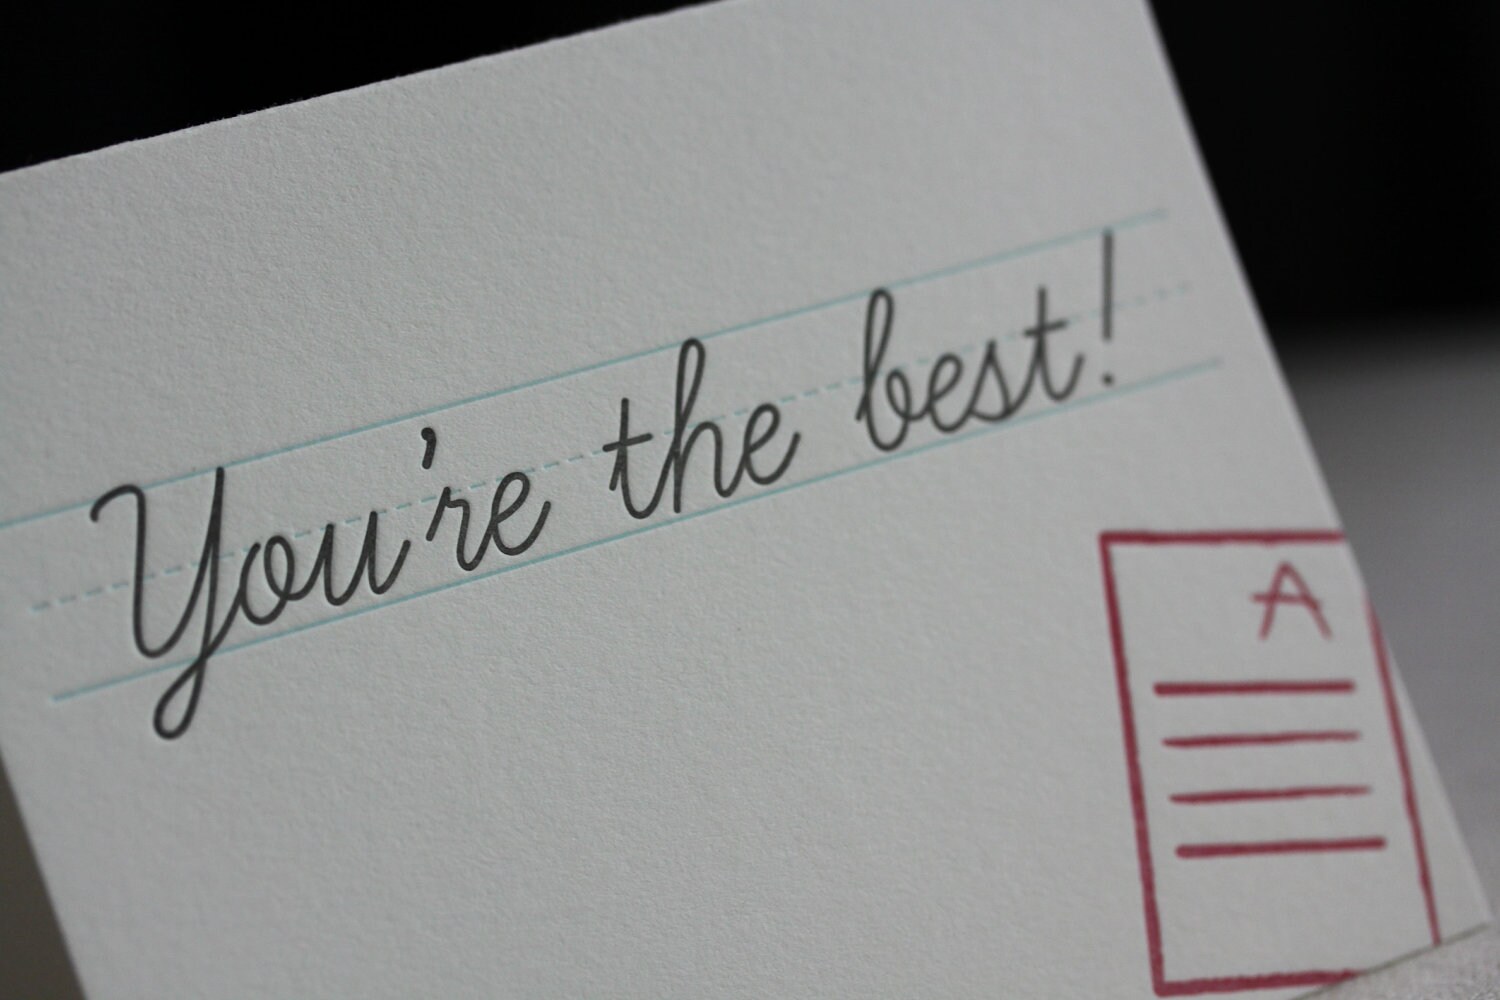 You're the best!
A